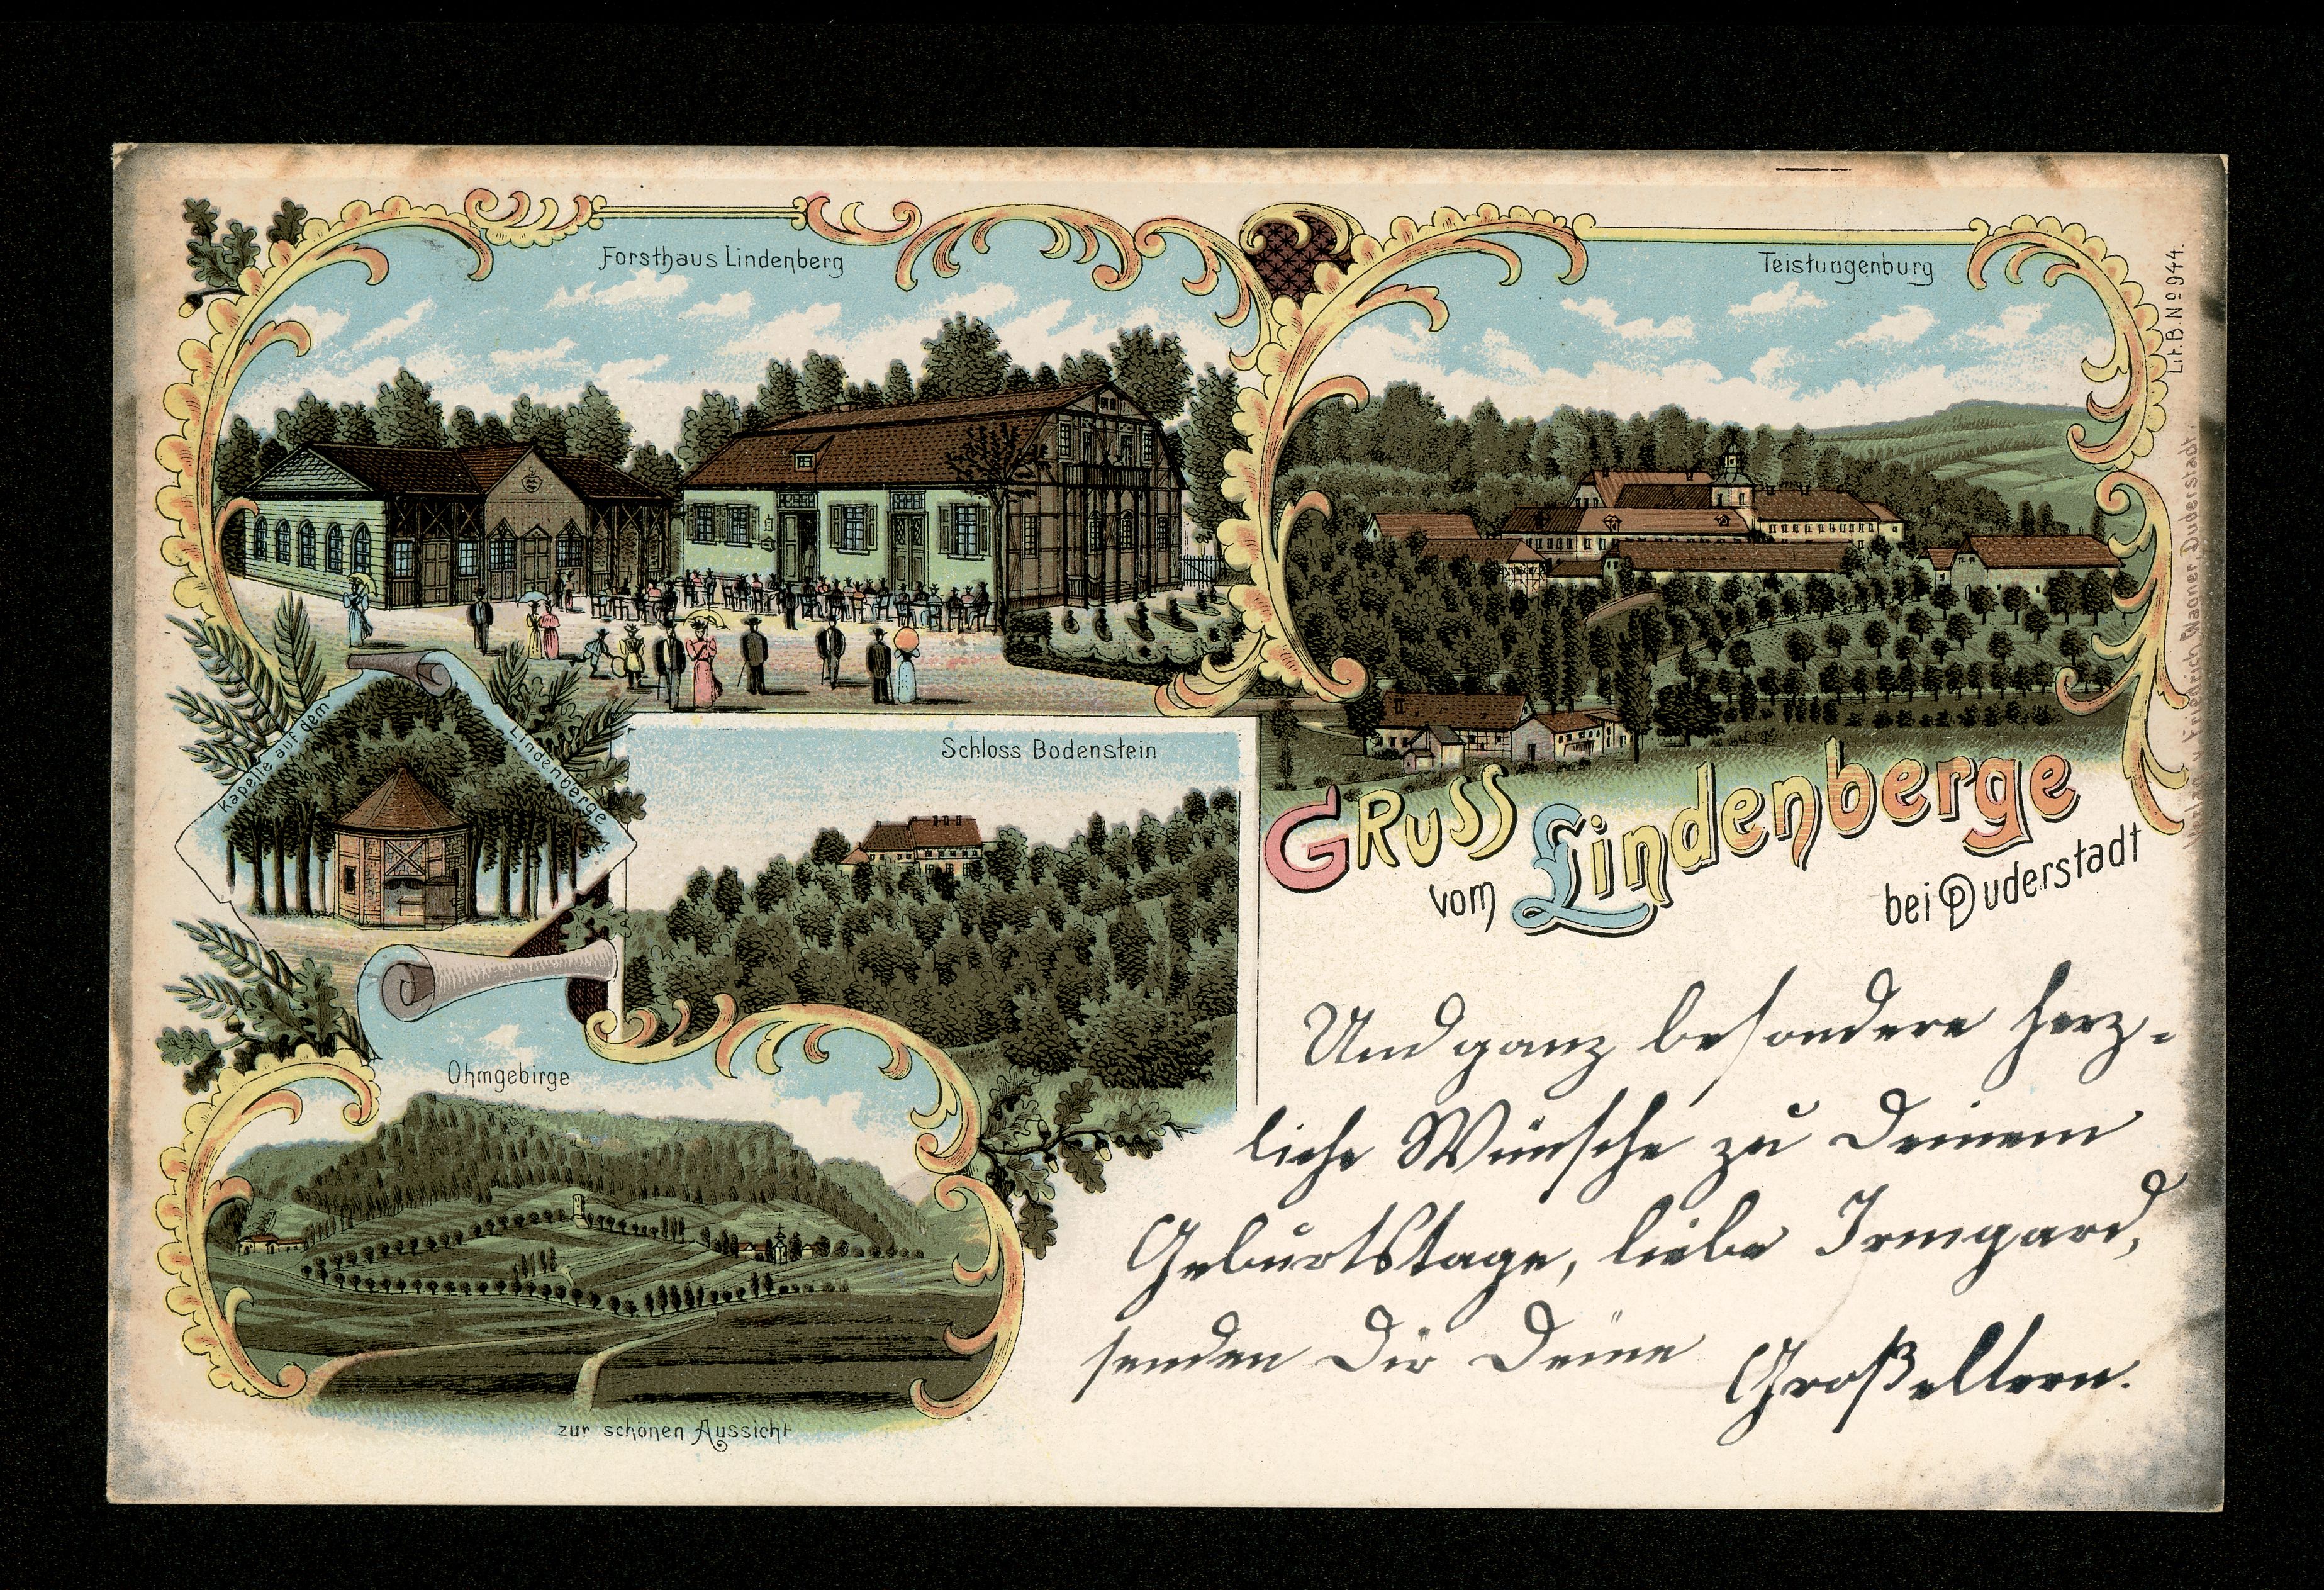 Forsthaus Lindenberg
Teistungenburg
Lit. B. № 944.
Verlag v. Friedrich Wagner, Duderstadt.
Kapelle auf dem Lindenberge
Schloss Bodenstein
Gruss
vom Lindenberge
bei Duderstadt
Ohmgebirge
zur schönen Aussicht
Und ganz besondere herz-
liche Wünsche zu Deinem
Geburtstage, liebe Irmgard,
senden Dir Deine
Großeltern.